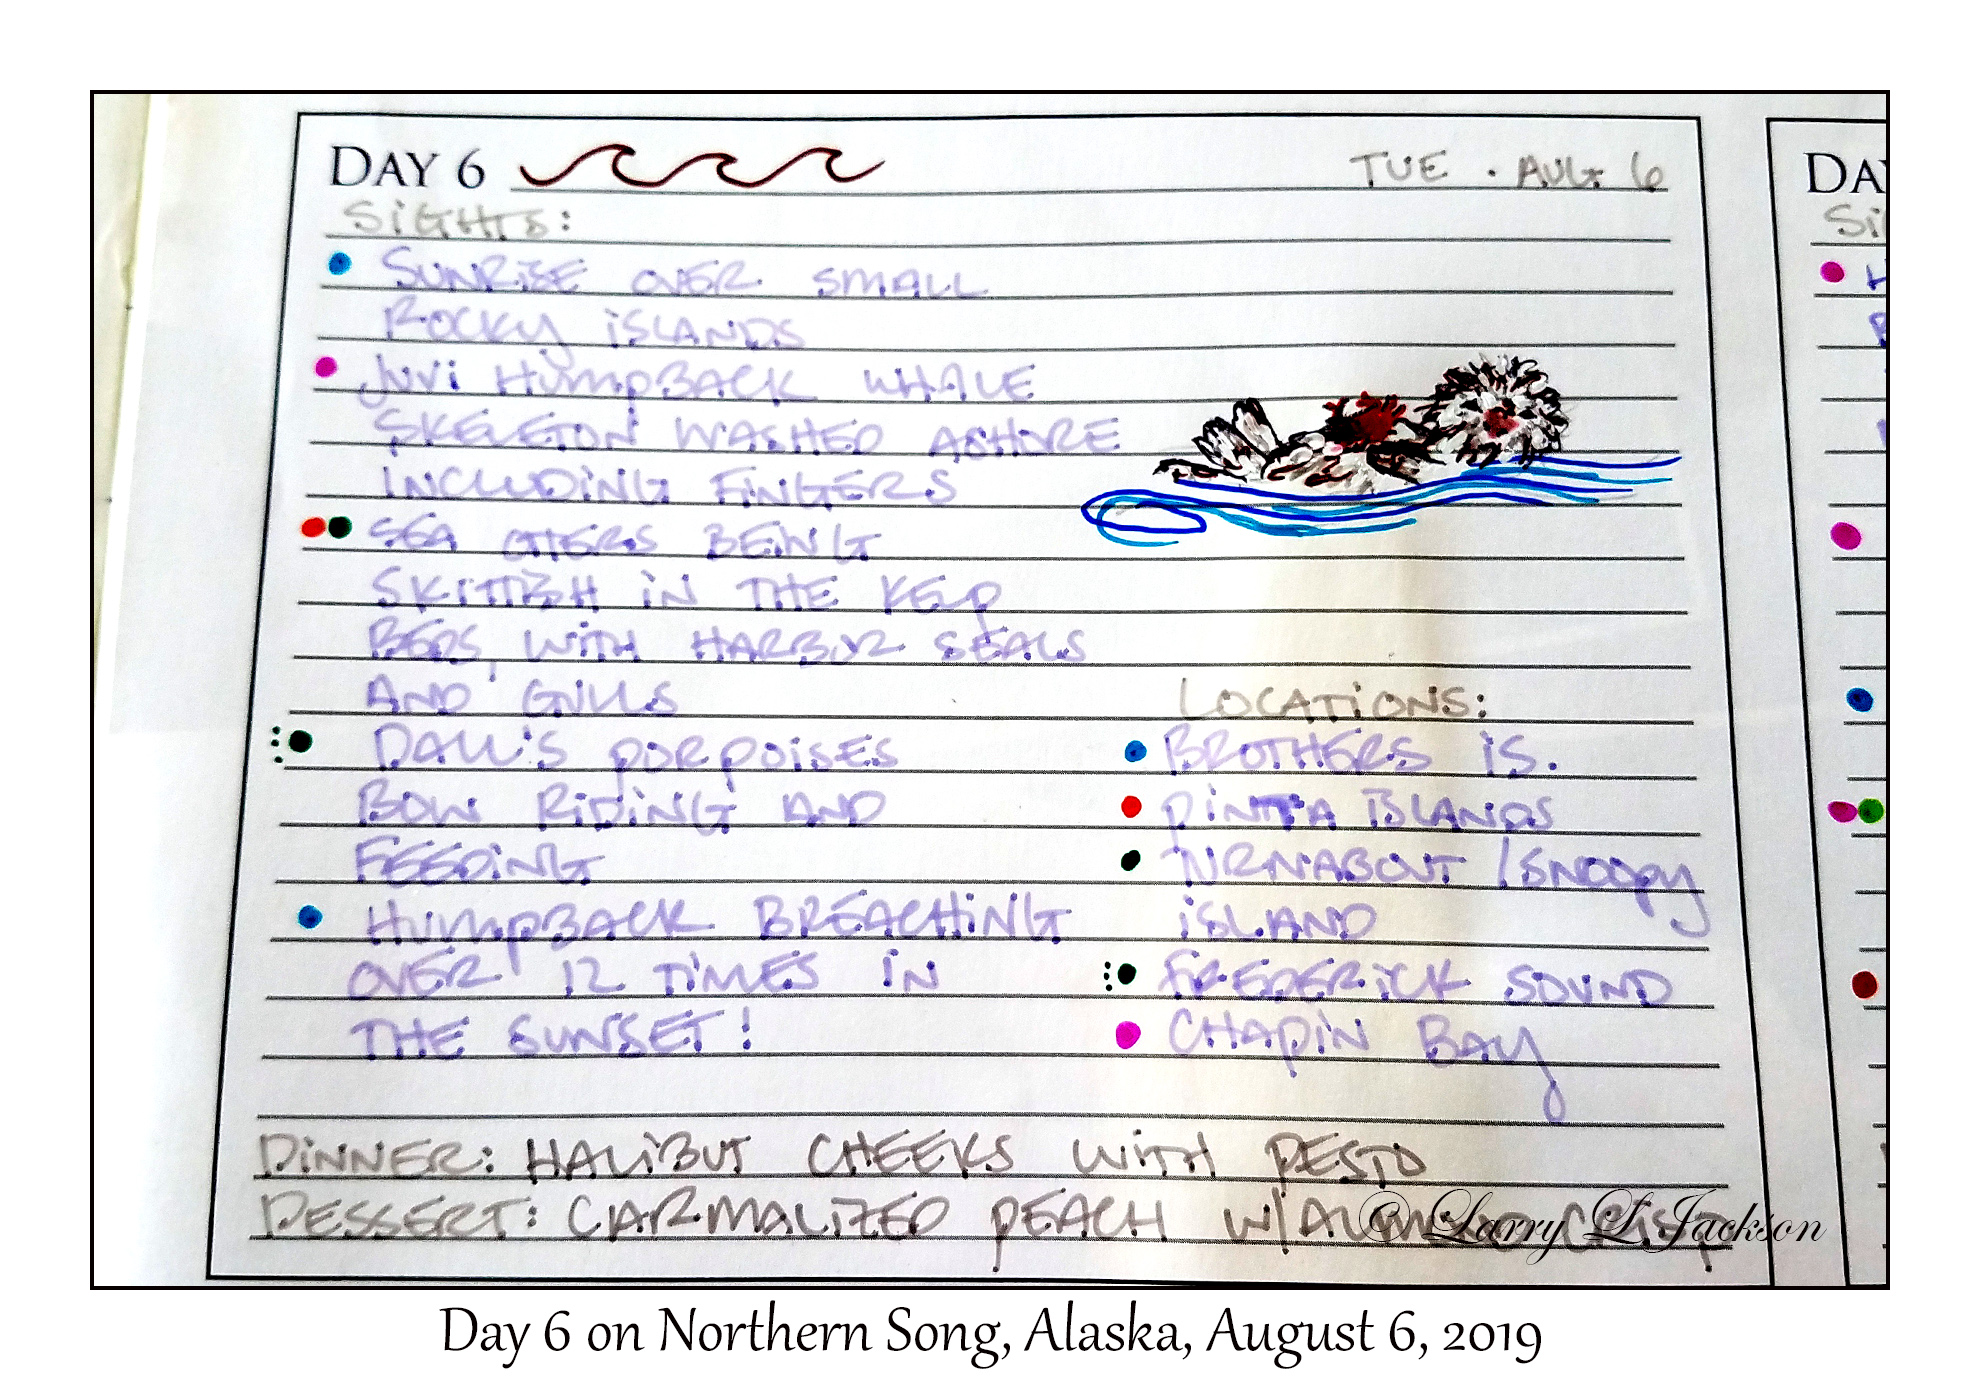 DAY 6
TUE . AUG 6
SIGHTS:
SUNRISE OVER SMALL
ROCKY ISLANDS
JUVI HUMPBACK WHALE
SKELETON WASHED ASHORE
INCLUDING FINGERS
SEA OTTERS BEING
SKITTISH IN THE KELP
BEDS, WITH HARBOR SEALS
AND GULLS
DALL'S PORPOISES
BOW RIDING AND
FEEDING
HUMPBACK BREACHING
OVER 12 TIMES IN
THE SUNSET!
LOCATIONS:
BROTHERS IS.
PINTA ISLANDS
TURNABOUT / SNOOPY
ISLAND
FREDERICK SOUND
CHAPIN BAY
DINNER: HALIBUT CHEEKS WITH PESTO
DESSERT: CARMALIZED PEACH W/ALMOND CRISP
© Larry L Jackson
DA
Si
Day 6 on Northern Song, Alaska, August 6, 2019